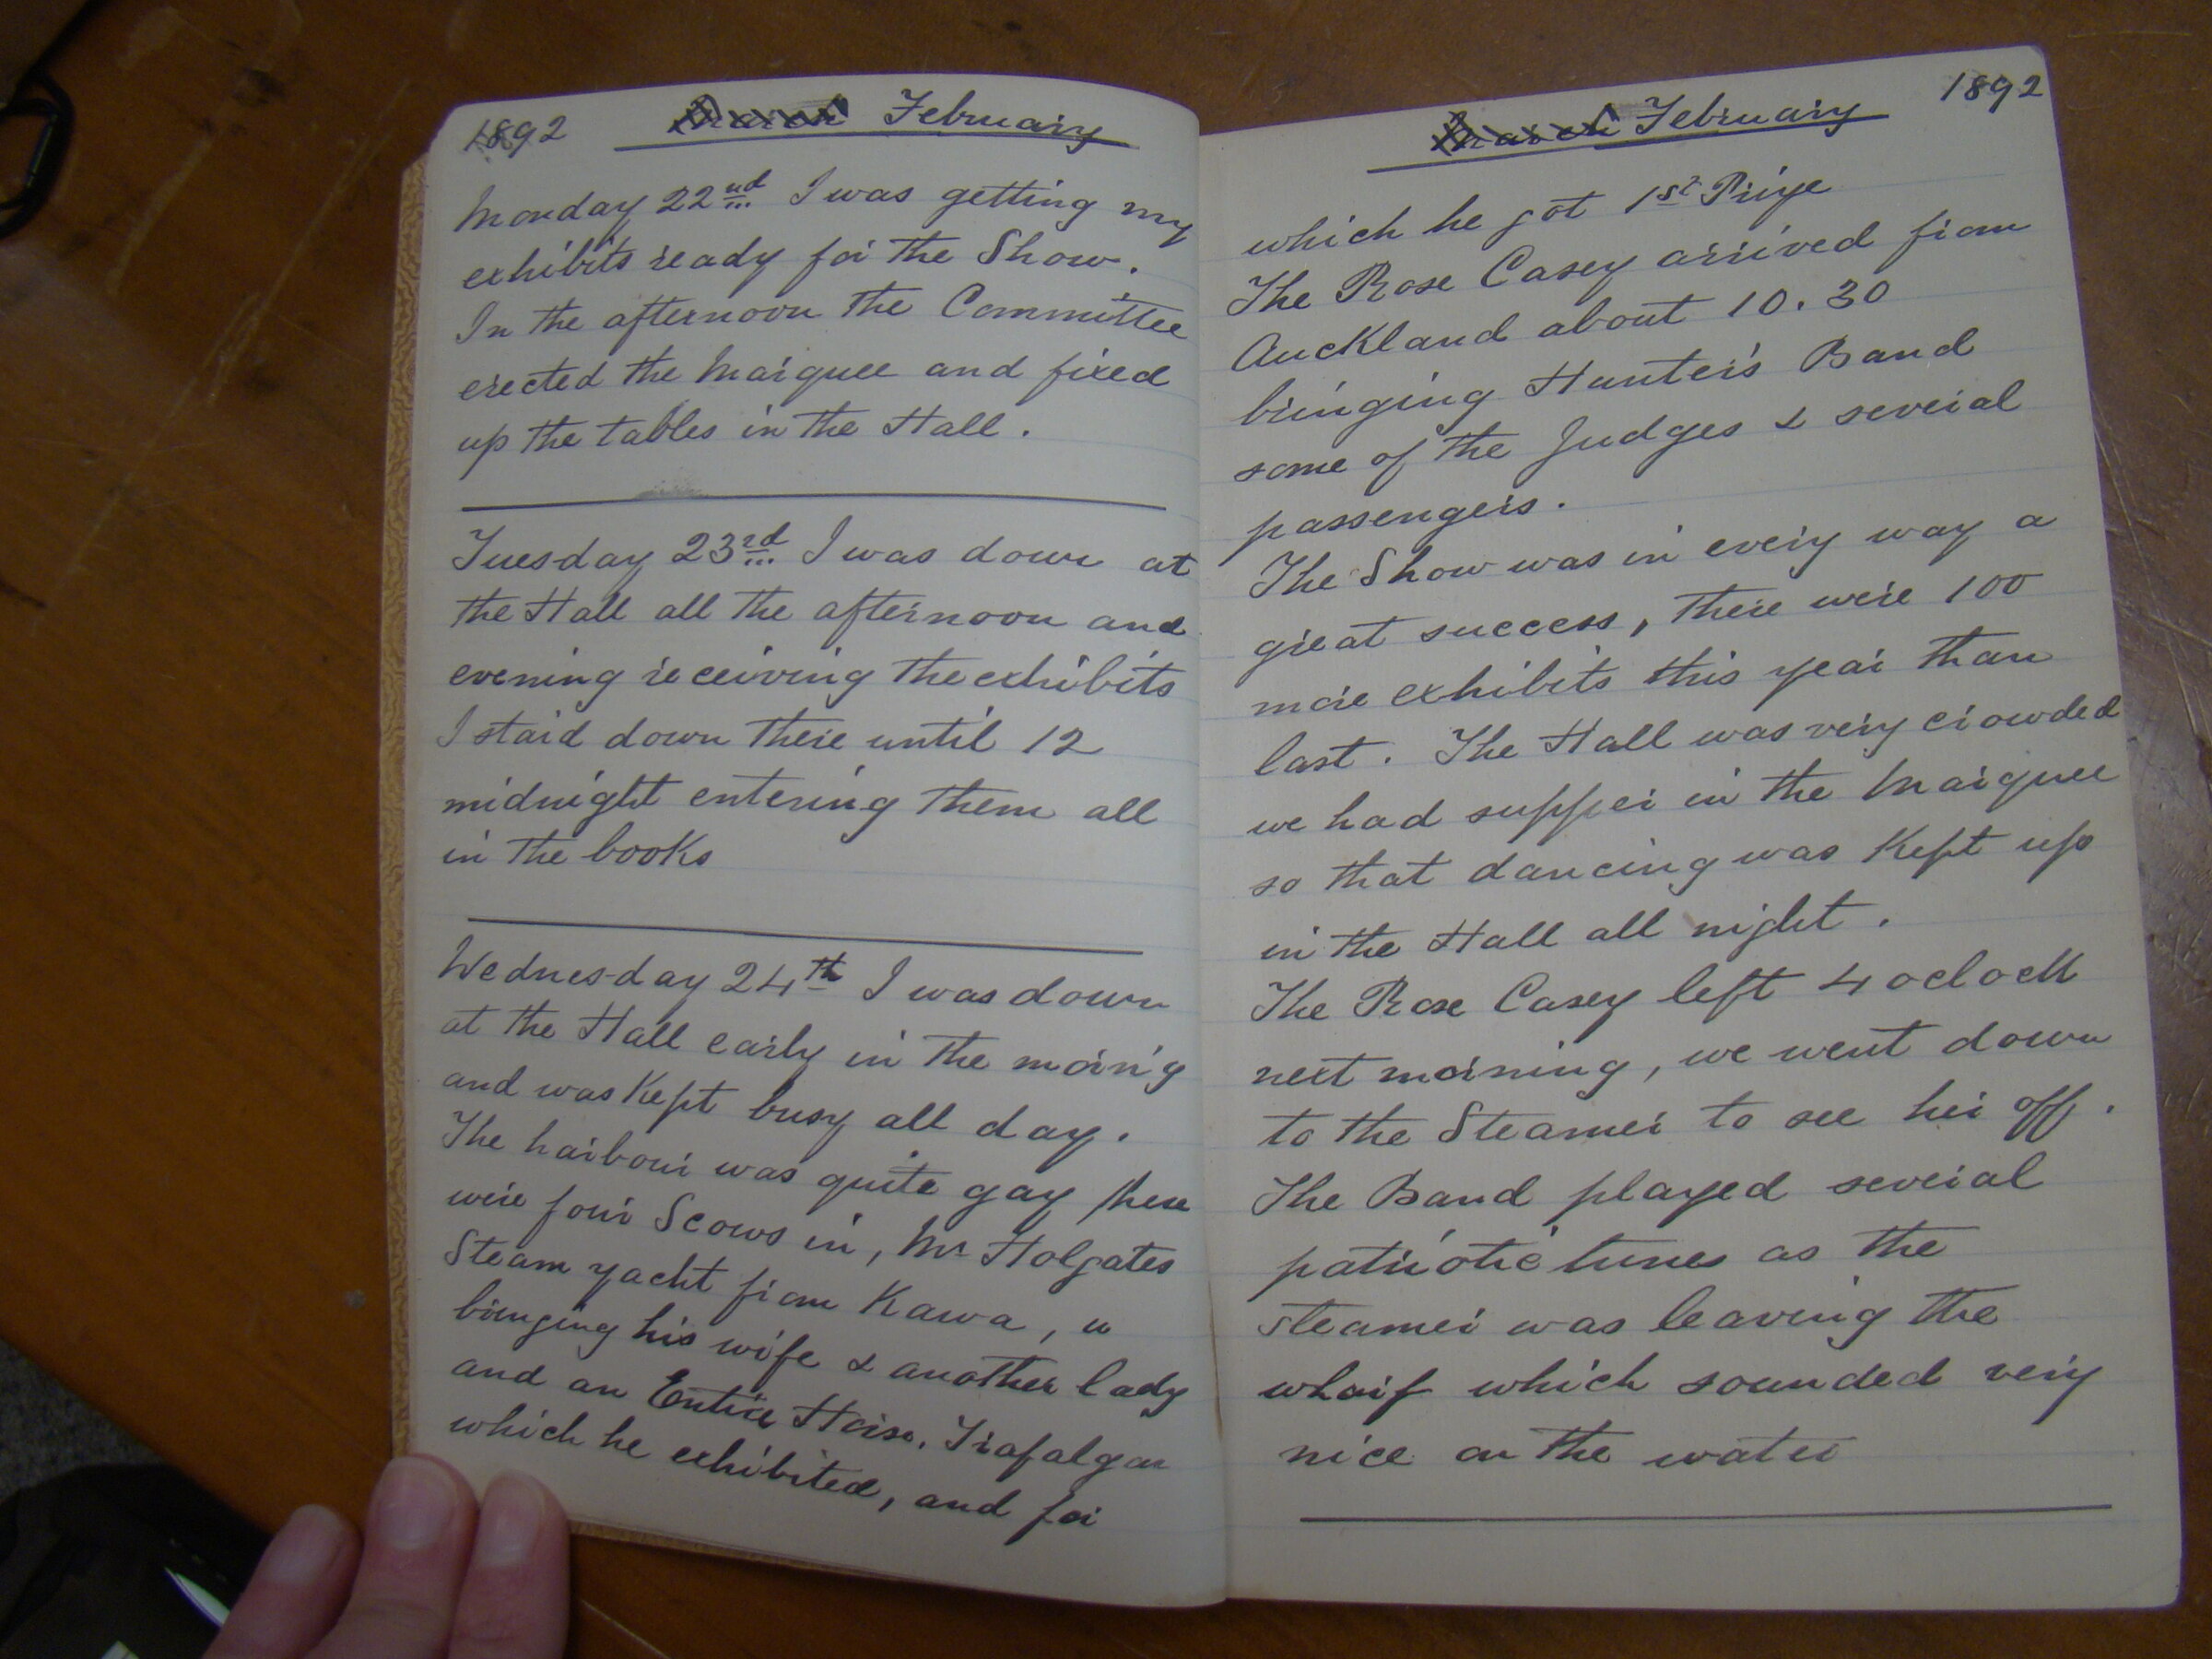 1892 March February
Monday 22nd I was getting my
exhibits ready for the Show.
In the afternoon the Committee
erected the Marquee and fixed
up the tables in the Hall.
Tuesday 23rd I was down at
the Hall all the afternoon and
evening receiving the exhibits
I staid down there until 12
midnight entering them all
in the books
Wednesday 24th I was down
at the Hall early in the morn'g
and was Kept busy all day.
The harbour was quite gay there
were four Scows in, Mr Holgates
Steam yacht from Kawa,
bringing his wife & another lady
and an Entire Horse, Trafalgar
which he exhibited, and for
March February 1892
which he got 1st Prize
The Rose Casey arrived from
Auckland about 10.30
bringing Hunter's Band
some of the Judges & several
passengers.
The Show was in every way a
great success, there were 100
more exhibits this year than
last. The Hall was very crowded
we had supper in the Marquee
so that dancing was Kept up
in the Hall all night.
The Rose Casey left 4 oclock
next morning, we went down
to the Steamer to see her off.
The Band played several
patriotic tunes as the
steamer was leaving the
wharf which sounded very
nice on the water